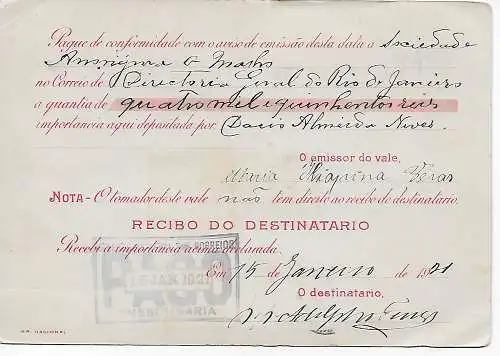 Pague de conformidade com o aviso de emissão desta data a Sociedade
no Correio de Directoria Geral do Rio de Janeiro
a quantia de quatro mil e quinhentos reis
importancia aqui depositada por Dacio Almeida Neves
O emissor do vale,
Maria
NOTA - O tomador deste vale não tem direito ao recibo do destinatario.
RECIBO DO DESTINATARIO
Recebi a importancia acima declarada.
CORREIOS
PAGO
15 JAN 1921
Em 15 de Janeiro de 1921
O destinatario,